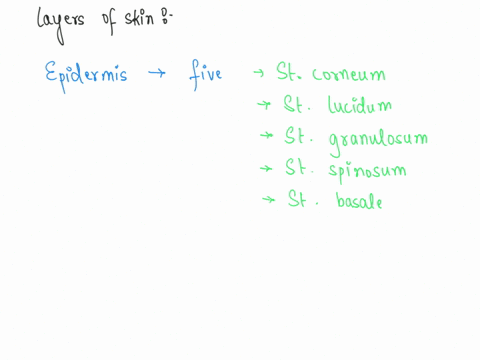 layers of skin :-
Epidermis → five → St. corneum
→ St. lucidum
→ St. granulosum
→ St. spinosum
→ St. basale